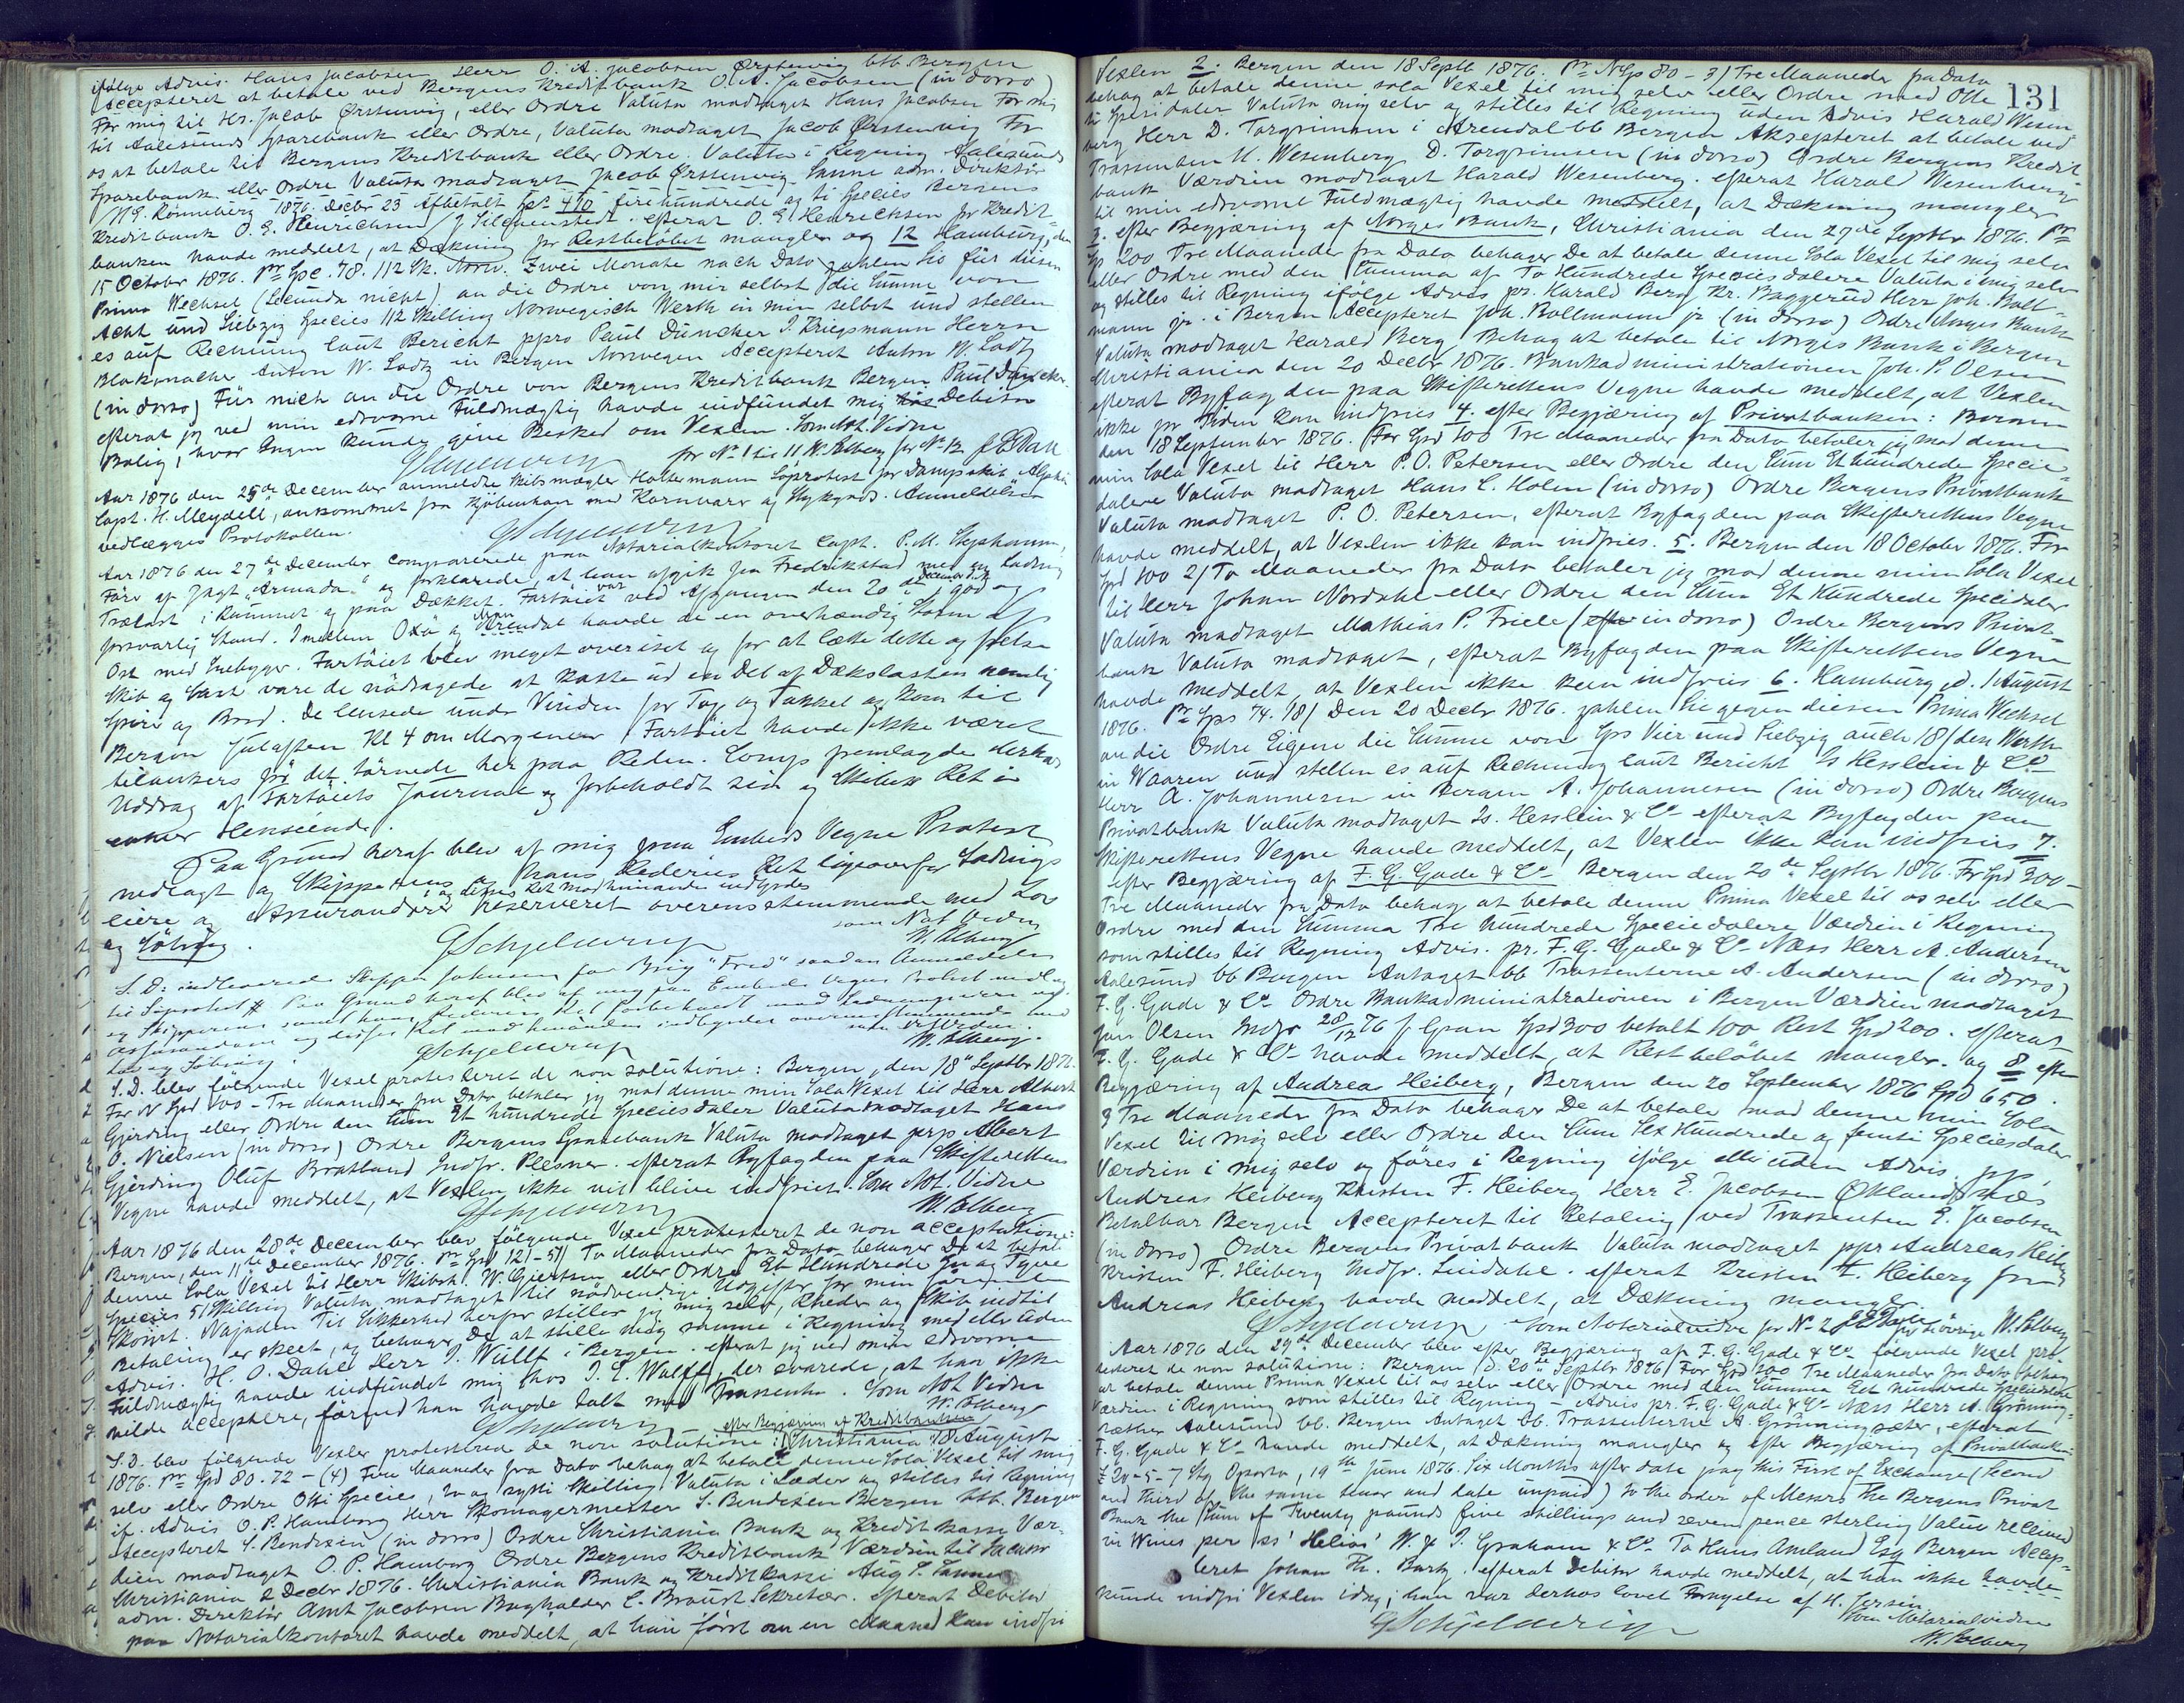 ifølge Advis. Hans Jacobsen Herr O. A. Jacobsen Ørstenvig btb. Bergen
Accepteret at betale ved Bergens Kreditbank O. A. Jacobsen (in dorso)
For mig til Hr. Jacob Ørstenvig, eller Ordre Valuta modtaget Hans Jacobsen For mig
til Aalesunds Sparebank eller Ordre, Valuta modtaget Jacob Ørstenvig For
os at betale til Bergens Kreditbank eller Ordre. Valuta i Regning Aalesunds
Sparebank eller Ordre Valuta modtaget Jacob Ørstenvig Sanne adm. Direktør
N. G. Rønneberg 1876. Decbr 23 Afbetalt Spd 410 firehundrede og ti Species Bergens
Kreditbank O. G. Henrichsen J Silchenstedt. efterat O. G. Henrichsen for Kredit-
banken havde meddelt, at Dækning for Restbeløbet mangler og 12 Hamburg, den
15 October 1876. Pr Spe. 78. 112 Sk. Norw. Zwei Monate nach Dato zahlen Sie für diesen
Prima Wechsel (Secunda nicht) an die Ordre von mir selbst die Summe von
Acht und Siebzig Species 112 Skilling Norwegisch Werth in mir selbst und stellen
es auf Rechnung laut Bericht ppro Paul Düncker J. Kriegsmann Herrn
Blokmacher Anton W. Ladtz in Bergen Norwegen Accepteret Anton W. Ladtz
(in dorso) Für mich an die Ordre von Bergens Kreditbank Bergen. Paul Düncker
efterat jeg ved min edsvorne Fuldmægtig havde indfundet mig hos Debitor
Bolig, hvor Ingen kunde give Besked om Vexlen. Som Not. Vidne
GSchjelderup for No 1 til 11 W. Solberg for No 12
Aar 1876 den 25de December anmeldte Skibsmægler Holtermann Søprotest for Dampskib "Alpha"
Capt. H. Meydell, ankommet fra Kjøbenhavn med Kornvarer og Stykgods. Anmeldelsen
vedlægges Protokollen.
GSchjelderup
Aar 1876 den 27de December comparerede paa Notarialkontoret Capt. P. M.
Fører af Jagt "Armada" og forklarede, at han afgik fra Fredrikstad med en Ladning
Trælast i Rummet og paa Dækket. Fartøiet var ved Afgangen den 20de December d. A. i god og
forsvarlig Stand. Imellem Oxø og Arendal havde de en overhændig Storm af
Ost med Snebyger. Fartøiet blev meget overiset og for at lette dette og frelse
Skib og Last vare de nødsagede at kaste ud en Del af Dækslasten nemlig
Spirer og Bord. De lensede under Vinden for Tog og Takkel og kom til
Bergen Juleaften Kl 4 om Morgenen. Fartøiet havde ikke været
tilankers før det tørnede her paa Reden. Comp fremlagde derhos
Uddrag af Fartøiets Journal og forbeholdt sig og Rederiets Ret i
enhver Henseende.
Paa Grund heraf blev af mig paa Embeds Vegne Protest
nedlagt og Skipperens og hans Rederies Ret ligeoverfor Ladnings
eiere og Assurandører og disses Ret mod hinanden indbyrdes reserveret overensstemmende med Lov
og Søbrug.
som Not Vidne
GSchjelderup W. Solberg
S. D. indleverede Skipper Johnsen for Brig "Fred" saadan Anmeldelse
til Søprotest # Paa Grund heraf blev af mig paa Embeds Vegne Protest nedlagt
og Skipperens samt hans Rederies Ret forbeholdt mod Ladningseiere og
Assurandører og disses Ret mod hinanden indbyrdes overensstemmende med
Lov og Søbrug som Not Vidne.
GSchjelderup W. Solberg.
S. D. blev følgende Vexel protesteret de non solutione: Bergen, den 18de Septbr 1876.
For N Spd 100 - Tre Maaneder fra Dato betaler jeg mod denne min Sola Vexel til Herr Albert
Gjerding eller Ordre den Sum Et hundrede Speciesdaler Valuta modtaget Hans
O. Nielsen (in dorso) Ordre Bergens Sparebank Valuta modtaget prp Albert
Gjerding Oluf Bratland Indfr. Plesner. efterat Byfogden paa Skifterettens
Vegne havde meddelt, at Vexlen ikke vil blive indfriet. Som Not. Vidne
GSchjelderup W. Solberg
Aar 1876 den 28de December blev følgende Vexel protesteret de non acceptatione:
Bergen, den 11te December 1876. Pr Spd 121-51/ To Maaneder fra Dato behager De at betale
denne Sola Vexel til Herr Skibsk. W. Gjertsen eller Ordre Et Hundrede En og Tyve
Species 51 Skilling Valuta modtaget til nødvendige Udgifter for min førende
Skonnt. Najaden Til Sikkerhed herfor stiller jeg mig selv, Rheder og Skib indtil
Betaling er skeet, og behager De at stille mig samme i Regning med eller uden
Advis. H. O. Dahle Herr J. Wulff i Bergen. efterat jeg ved min edsvorne
Fuldmægtig havde indfundet mig hos J. E. Wolff, der svarede, at han ikke
vilde acceptere, førend han havde talt med Trassenten. Som Not Vidne
GSchjelderup W. Solberg
S. D. blev følgende Vexler protesterede de non solutione: efter Begjæring af Kreditbanken 1 Christiania 18 August
1876. Pr Spd 80. 72 - (4) Fire Maaneder fra Dato behag at betale denne Sola Vexel til mig
selv eller Ordre Otti Species, to og sytti Skilling Valuta i Læder og stilles til Regning
if. Advis O. P. Hamborg Herr Skomagermester S. Bendixen Bergen btb. Bergen
Accepteret S. Bendixen (in dorso) Ordre Christiania Bank og Kreditkasse Vær-
dien modtaget O. P. Hamborg Ordre Bergens Kreditbank Værdien til Incasso
Christiania 2 Decbr 1876. Christiania Bank og Kreditkasse Aug S.
adm. Direktør Amt Jacobsen Bogholder C. Braürt Sekretær. efterat Debitor
paa Notarialkontoret havde meddelt, at han først om en Maaned kan indfri
131
Vexlen 2. Bergen den 18 Septb 1876. Pr N Sp 80 - 3/ Tre Maaneder fra Dato
behag at betale denne sola Vexel til mig selv eller Ordre med Otte
ti Spesidaler Valuta mig selv og stilles til Regning uden Advis Harald Wesen-
berg Herr D. Torgrimsen i Arendal bb Bergen Aksepteret at betale ved
Trassenten H. Wesenberg D. Torgrimsen (in dorso) Ordre Bergens Kredit-
bank Værdien modtaget Harald Wesenberg. efterat Harald Wesenberg
til min edsvorne Fuldmægtig havde meddelt, at Dækning mangler
3. efter Begjæring af Norges Bank, Christiania den 27de Septbr 1876. Pr
Sp 200 Tre Maaneder fra Dato behager De at betale denne Sola Vexel til mig selv
eller Ordre med den Summa af To Hundrede Speciesdalere Valuta i mig selv
og stilles til Regning ifølge Advis pr. Harald Berg Kr. Baggerud Herr Joh. Bolt-
mann jr. i Bergen Accepteret Joh. Boltmann jr. (in dorso) Ordre Norges Bank
Valuta modtaget Harald Berg Behag at betale til Norges Bank i Bergen
Christiania den 20 Decbr 1876. Bankadministrationen Joh. P. Olsen
efterat Byfogden paa Skifterettens Vegne havde meddelt, at Vexlen
ikke for Tiden kan indfries 4. efter Begjæring af Privatbanken: Bergen
den 18 September 1876. For Spd 100 Tre Maaneder fra Dato betaler jeg mod denne
min Sola Vexel til Herr P. O. Petersen eller Ordre den Sum Et hundrede Specie-
dalere Valuta modtaget Hans C. Holen (in dorso) Ordre Bergens Privatbank
Valuta modtaget P. O. Petersen, efterat Byfogden paa Skifterettens Vegne
havde meddelt, at Vexlen ikke kan indfries. 5. Bergen den 18 October 1876. For
Spd 100 2/ To Maaneder fra Dato betaler jeg mod denne min Sola Vexel
til Herr Johan Nordahl eller Ordre den Sum Et Hundrede Specidaler
Valuta modtaget Mathias P. Friele (in dorso) Ordre Bergens Privat-
bank Valuta modtaget, efterat Byfogden paa Skifterettens Vegne
havde meddelt, at Vexlen ikke kan indfries 6. Hamburg d. 1 August
1876. Pr Sps 74. 18/ Den 20 Decbr 1876. zahlen Sie gegen diesen Prima Wechsel
an die Ordre Eigene die Summe von Sps Vier und Siebzig auch 18/ den Werth
in Waaren und stellen es auf Rechnung laut Bericht Is Hesslein & Co
Herr A. Johannesen in Bergen A. Johannesen (in dorso) Ordre Bergens
Privatbank Valuta modtaget Is. Hesslein & Co efterat Byfogden paa
Skifterettens Vegne havde meddelt, at Vexlen ikke kan indfries 7.
efter Begjæring af F. G. Gade & Co Bergen den 20de Septbr 1876. For Spd 300 -
Tre Maaneder fra Dato behag at betale denne Prima Vexel til os selv eller
Ordre med den Summa Tre hundrede Speciedalere Værdien i Regning
som stilles til Regning Advis. pr. F. G. Gade & Co Næss Herr A. Andersen
Aalesund bb Bergen Antaget bb Trassenterne A. Andersen (in dorso)
F. G. Gade & Co Ordre Bankadministrationen i Bergen Værdien modtaget
Jans Olsen Indfr 28/12 76 f Gran Spd 300 betalt 100 Rest Spd 200. efterat
F. G. Gade & Co havde meddelt, at Restbeløbet mangler. og 8 efter
Begjæring af Andrea Heiberg, Bergen den 20 September 1876 Spd 650.
3 Tre Maaneder fra Dato behager De at betale mod denne min Sola
Vexel til mig selv eller Ordre den Sum Sex Hundrede og femti Speciesdaler
Værdien i mig selv og føres i Regning ifølge eller uden Advis pp.
Andreas Heiberg Kristen F. Heiberg Herr E. Jacobsen Økland
Betalbar Bergen Accepteret til Betaling ved Trassenten E. Jacobsen
(in dorso) Ordre Bergens Privatbank Valuta modtaget ppr Andreas Heiberg
Kristen F. Heiberg Indfr. Lindahl. efterat Kristen F. Heiberg for
Andreas Heiberg havde meddelt, at Dækning mangler
GSchjelderup Som Notarialvidne for No 2 for Øvrige W. Solberg
Aar 1876 den 29de December blev efter Begjæring af F. G. Gade & Co følgende Vexel pro-
testeret de non solutione: Bergen d. 20te Septbr 1876/ For Spd 100 Tre Maaneder fra Dato behag
at betale denne Prima Vexel til os selv eller Ordre med den Summa Et hundrede Speciedalere
Værdien i Regning som stilles til Regning - Advis pr. F. G. Gade & Co Næss Herr A. Grønning-
sæther Aalesund bb. Bergen Antaget bb. Trassenterne A. Grønningsæter, efterat
F. G. Gade & Co havde meddelt, at Dækning mangler og efter Begjæring af Privatbanken:
£ 20-5-7 Stg Oporto, 19th June 1876. Six Months after date pay this First of Exchange (Second
and Third of the same tenor and date unpaid) to the order of Messrs The Bergens Privat
Bank the Sum of Twenty pounds five shillings and seven pence sterling Value received
in Wines per ss' Helios' W. & J. Graham & Co. To Hans Amland Esq Bergen Accep-
teret Johan Th. Barty. efterat Debitor havde meddelt, at han ikke havde
kunde indfri Vexlen idag; han var derhos lovet Fornyelse af H. Jersin.
Som Notarialvidne
GSchjelderup W. Solberg